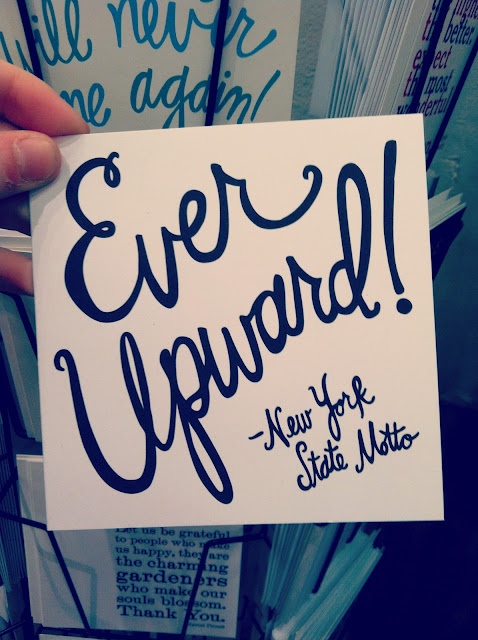 will never
again!
the better,
expect
the most
wonderful
Ever
Upward!
-New York
State Motto
Let us be grateful
to people who make
us happy, they are
the charming
gardeners
who make our
souls blossom.
Thank You.